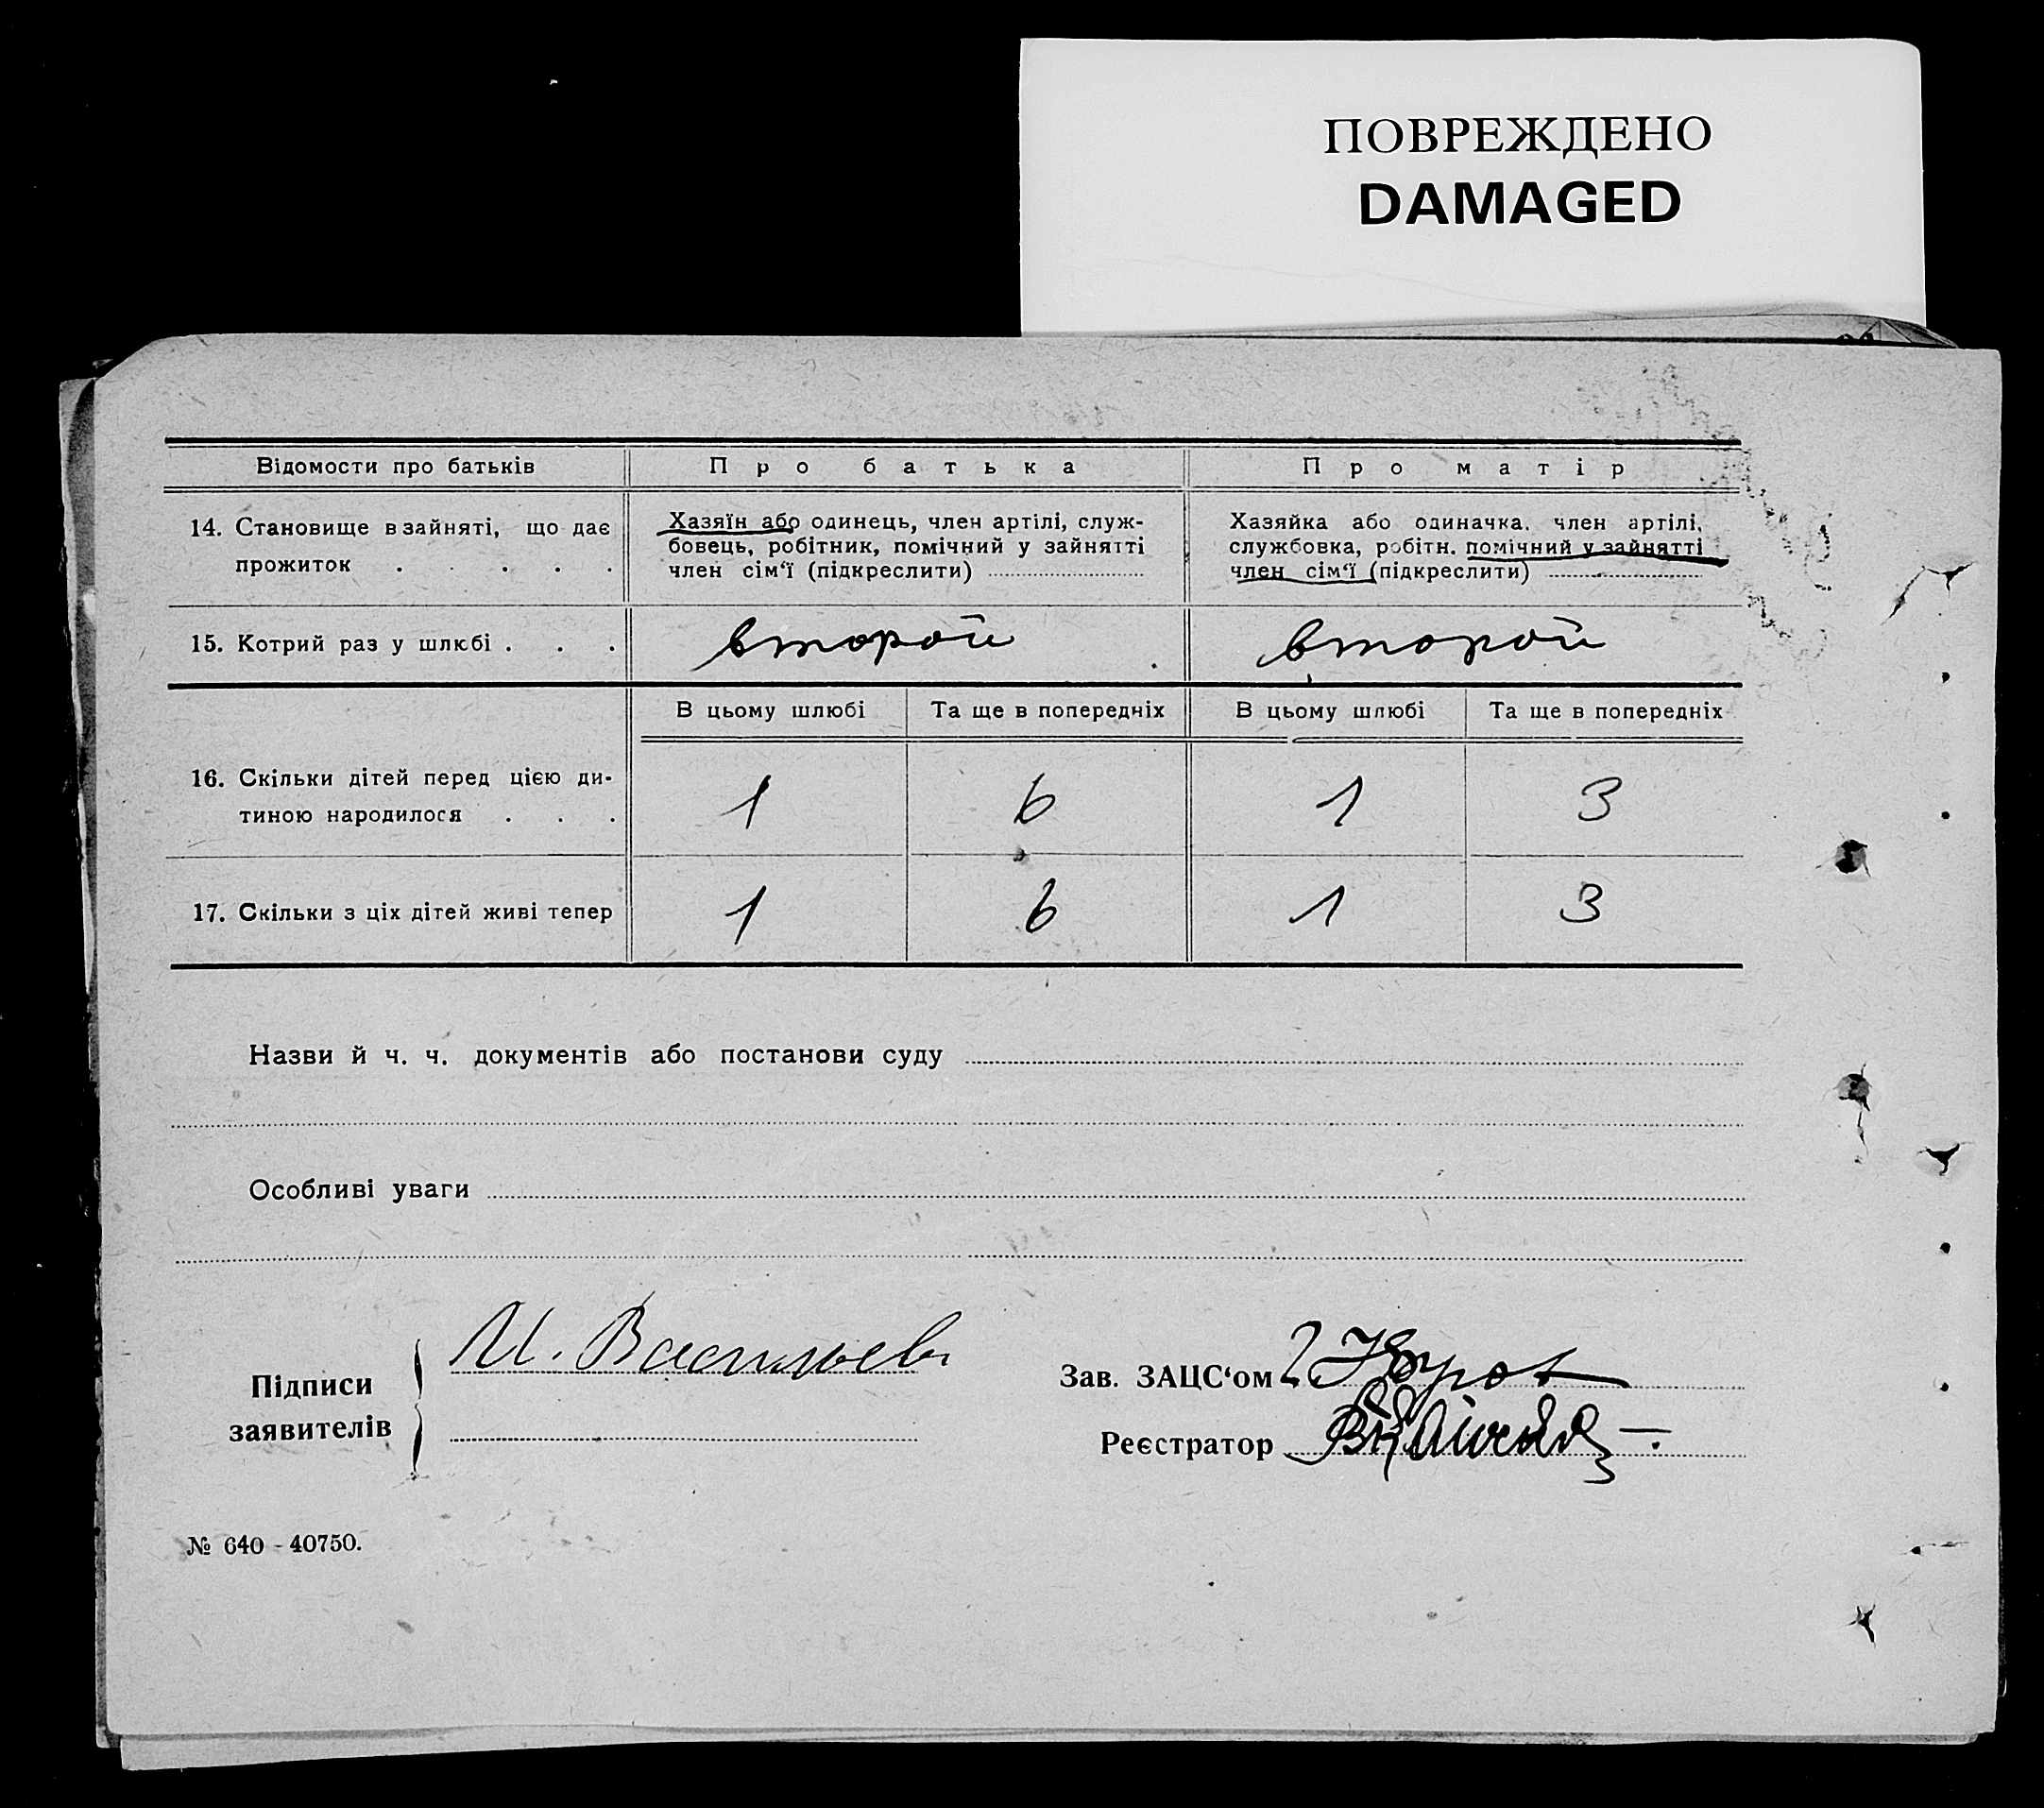 ПОВРЕЖДЕНО
DAMAGED
Відомости про батьків
Про батька
Про матір
14. Становище в зайняті, що дає
прожиток . . . . .
Хазяїн або одинець, член артілі, служ-
бовець, робітник, помічний у зайнятті
член сім‘ї (підкреслити)
Хазяйка або одиначка, член артілі,
службовка, робітн. помічний у зайнятті
член сім‘ї (підкреслити)
15. Котрий раз у шлюбі . . .
второй
второй
В цьому шлюбі
Та ще в попередніх
В цьому шлюбі
Та ще в попередніх
16. Скільки дітей перед цією ди-
тиною народилося . . .
1
6
1
3
17. Скільки з ціх дітей живі тепер
1
6
1
3
Назви й ч. ч. документів або постанови суду
Особливі уваги
Підписи
заявителів
И. Васильев
Зав. ЗАЦС‘ом
Реєстратор
№ 640 - 40750.